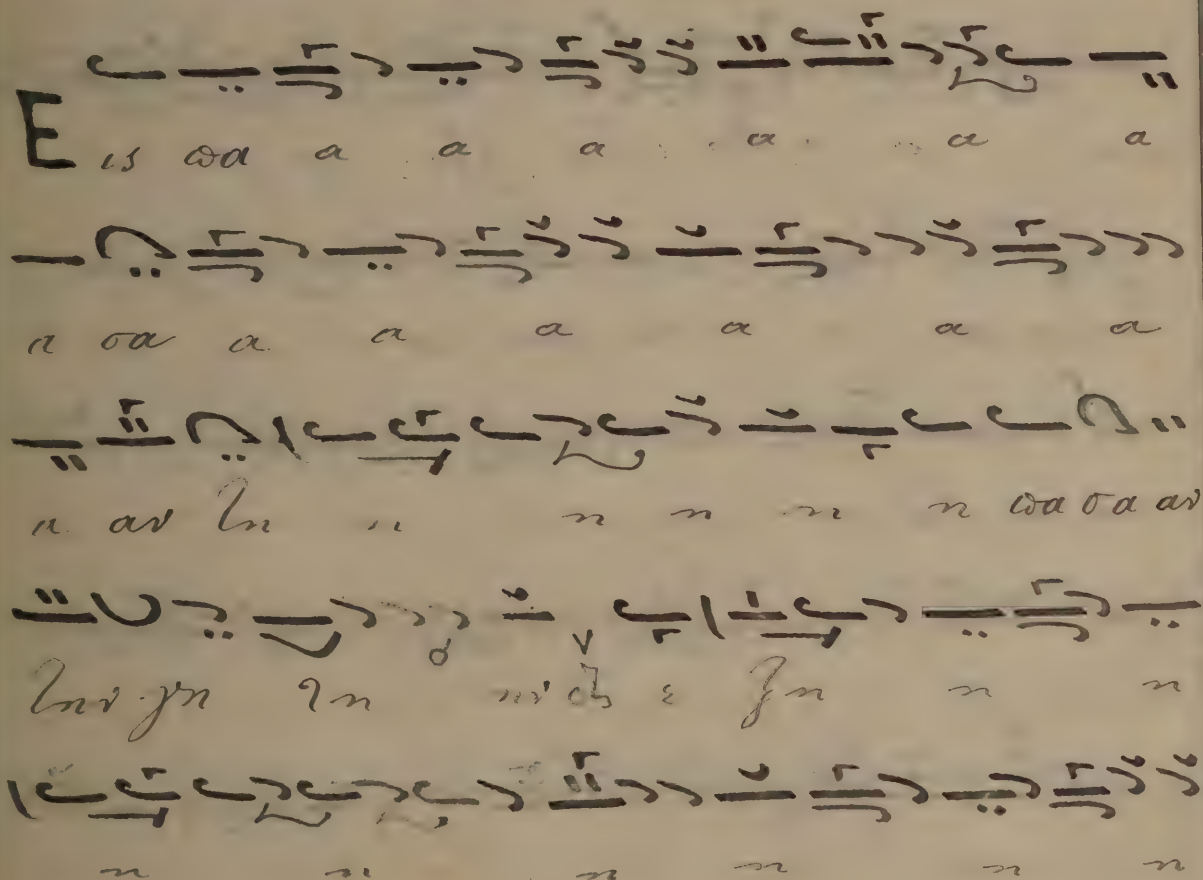 Εις ϖα α α α α α α
α σα α α α α α α
α αν τη η η η η η ϖα σα αν
την γη τη ην ε ξη η η
η η η η η η